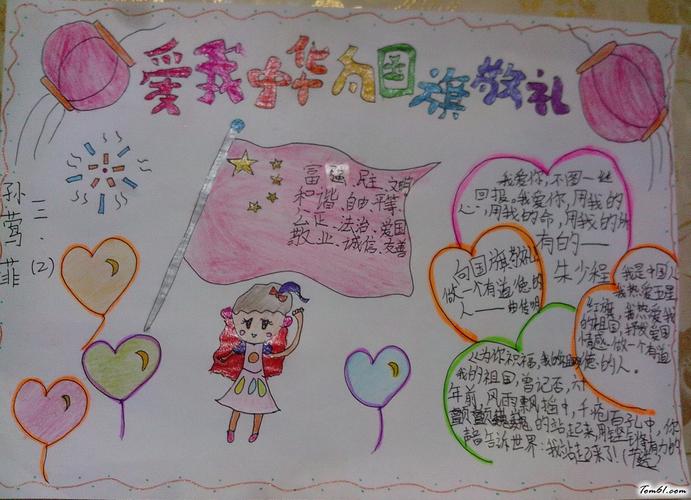 爱我中华 向国旗敬礼
孙莺菲
三.(2)
富强、民主、文明
和谐、自由、平等、
公正、法治、爱国
敬业、诚信、友善
我爱你,不图一丝
回报。我爱你,用我的
心,用我的命,用我的所
有的——
朱少程
向国旗敬礼
做一个有道德的
人——
我是中国人
我热爱五星
红旗,我热爱我
的祖国,抒发爱国
情感,做一个有道
德的人。
人为你祝福,我的祖国
我的祖国,曾记否,六十
年前,风雨飘摇中,千疮百孔中,你
的站起来,用
声音告诉世界:我站起来了!
Tom61.com